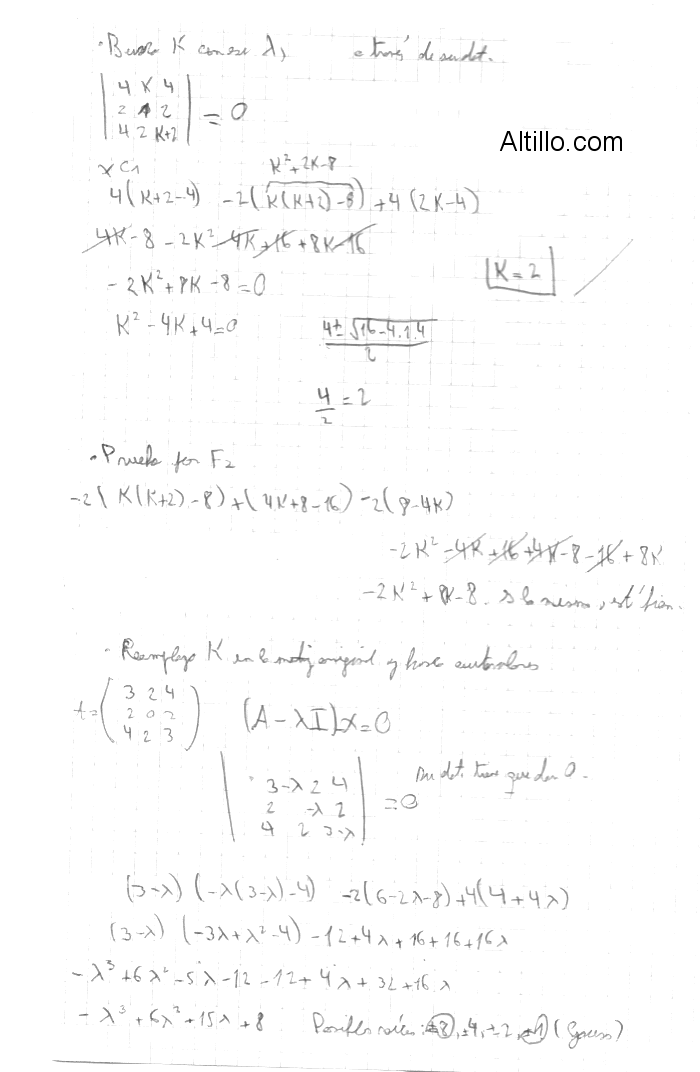 · Busco K con ese λ, a través de su det.
Altillo.com
| 4 K 4 |
| 2 1 2 | = 0
| 4 2 K+2 |
x C1
K²+2K-8
4(K+2-4) -2(K(K+2)-8) +4(2K-4)
4K-8-2K²-4K+16+8K-16
K=2
-2K²+8K-8=0
K²-4K+4=0
4±√16-4.1.4
2
4/2 = 2
· Prueba por F2
-2(K(K+2)-8)+(4K+8-16)-2(8-4K)
-2K²-4K+16+4K-8-16+8K
-2K²+8K-8. s lo mismo, está bien.
· Reemplazo K en la matriz original y busco autovalores
A= ( 3 2 4
2 0 2
4 2 3 ) (A-λI)x=0
Su det. tiene que dar 0.
| 3-λ 2 4 |
| 2 -λ 2 | =0
| 4 2 3-λ |
(3-λ) (-λ(3-λ)-4) -2(6-2λ-8)+4(4+4λ)
(3-λ) (-3λ+λ²-4) -12+4λ+16+16+16λ
-λ³+6λ²-5λ-12-12+4λ+32+16λ
-λ³+6λ²+15λ+8 Posibles raíces: ±8, ±4, ±2, ±1 (Gauss)